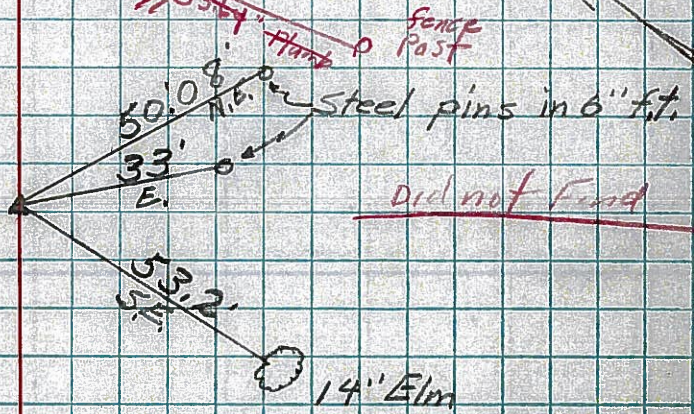 fence
Post
50'.08'
N.E.
Steel pins in 6" f.t.
33'
E.
Did not Find
53.2'
S.E.
14" Elm